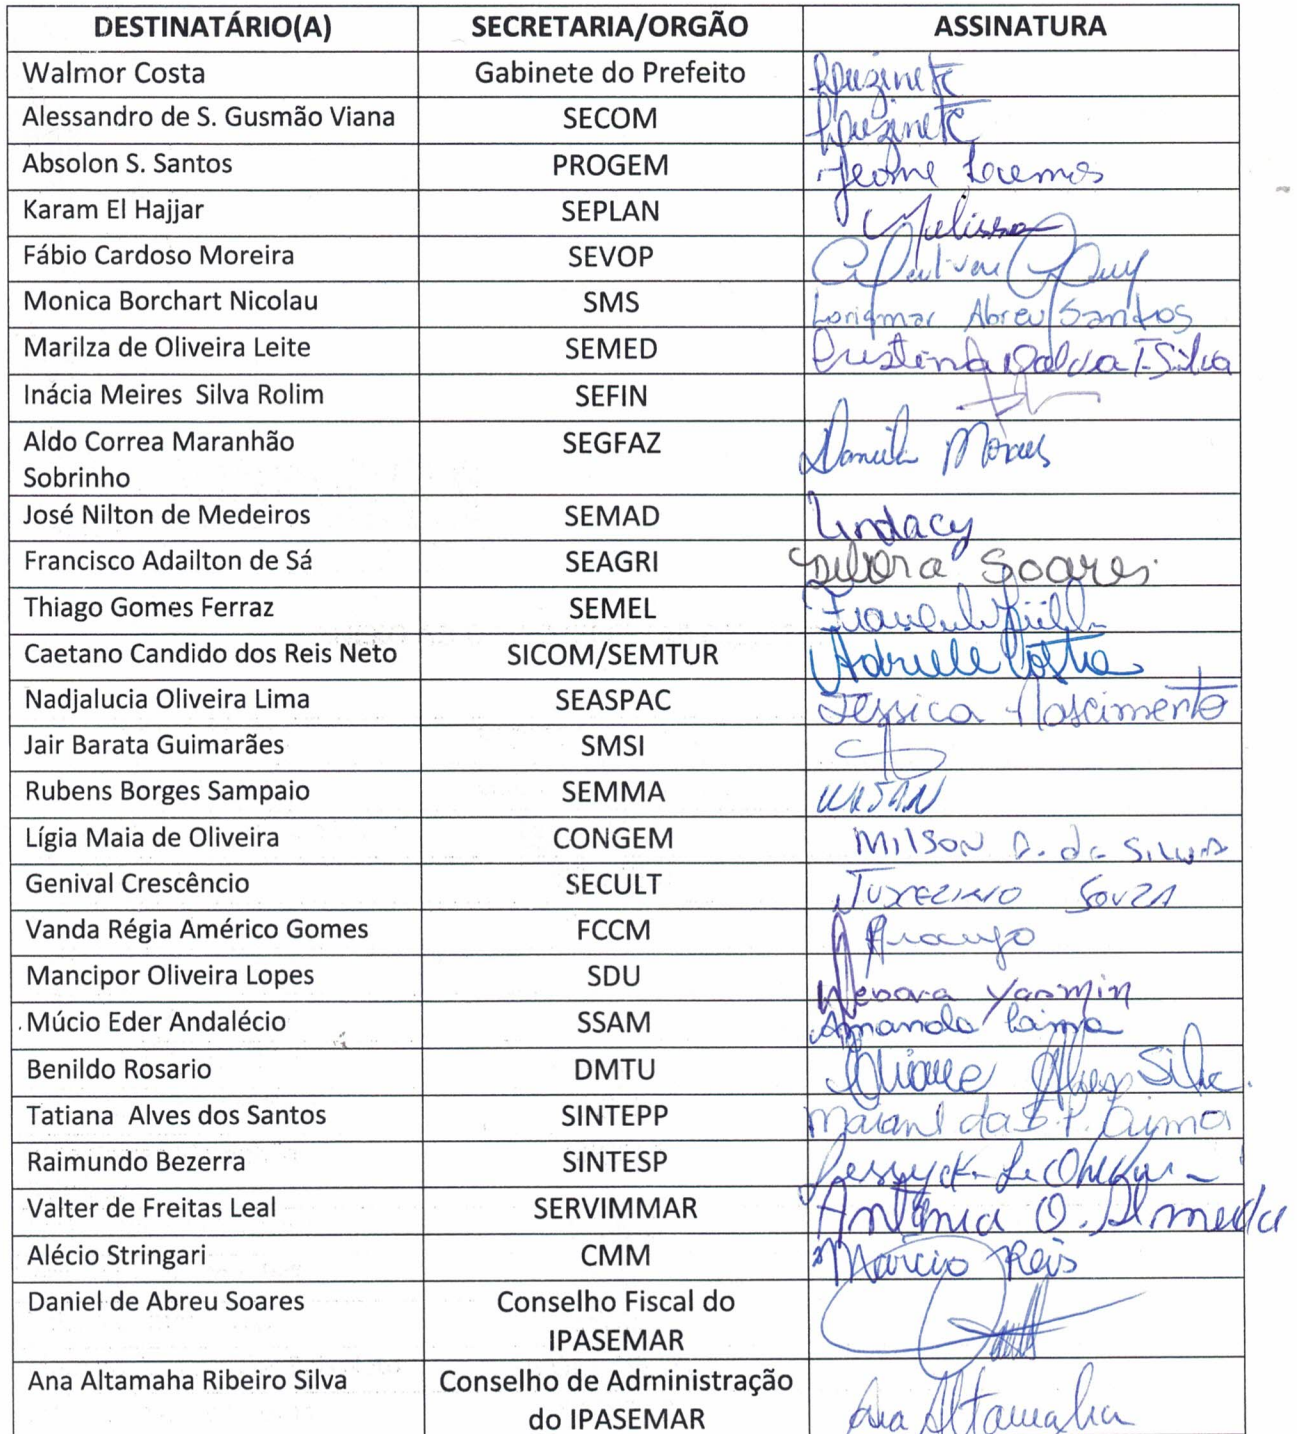 DESTINATÁRIO(A) SECRETARIA/ORGÃO ASSINATURA
Walmor Costa Gabinete do Prefeito
Alessandro de S. Gusmão Viana SECOM
Absolon S. Santos PROGEM
Karam El Hajjar SEPLAN Melissa
Fábio Cardoso Moreira SEVOP
Monica Borchart Nicolau SMS Loriqmar Abreu Santos
Marilza de Oliveira Leite SEMED Silva
Inácia Meires Silva Rolim SEFIN
Aldo Correa Maranhão SEGFAZ Moraes
Sobrinho
José Nilton de Medeiros SEMAD Lindacy
Francisco Adailton de Sá SEAGRI Debora Soares
Thiago Gomes Ferraz SEMEL
Caetano Candido dos Reis Neto SICOM/SEMTUR Adriele Costa
Nadjalucia Oliveira Lima SEASPAC Jessica Nascimento
Jair Barata Guimarães SMSI
Rubens Borges Sampaio SEMMA
Lígia Maia de Oliveira CONGEM Milson D. da Silva
Genival Crescêncio SECULT Juscelino Souza
Vanda Régia Américo Gomes FCCM Araujo
Mancipor Oliveira Lopes SDU Debora Yasmin
Múcio Eder Andalécio SSAM Amanda Lima
Benildo Rosario DMTU Alves Silva
Tatiana Alves dos Santos SINTEPP
Raimundo Bezerra SINTESP
Valter de Freitas Leal SERVIMMAR Antônia O. Almeida
Alécio Stringari CMM Marcio Reis
Daniel de Abreu Soares Conselho Fiscal do
IPASEMAR
Ana Altamaha Ribeiro Silva Conselho de Administração
do IPASEMAR Ana Altamaha